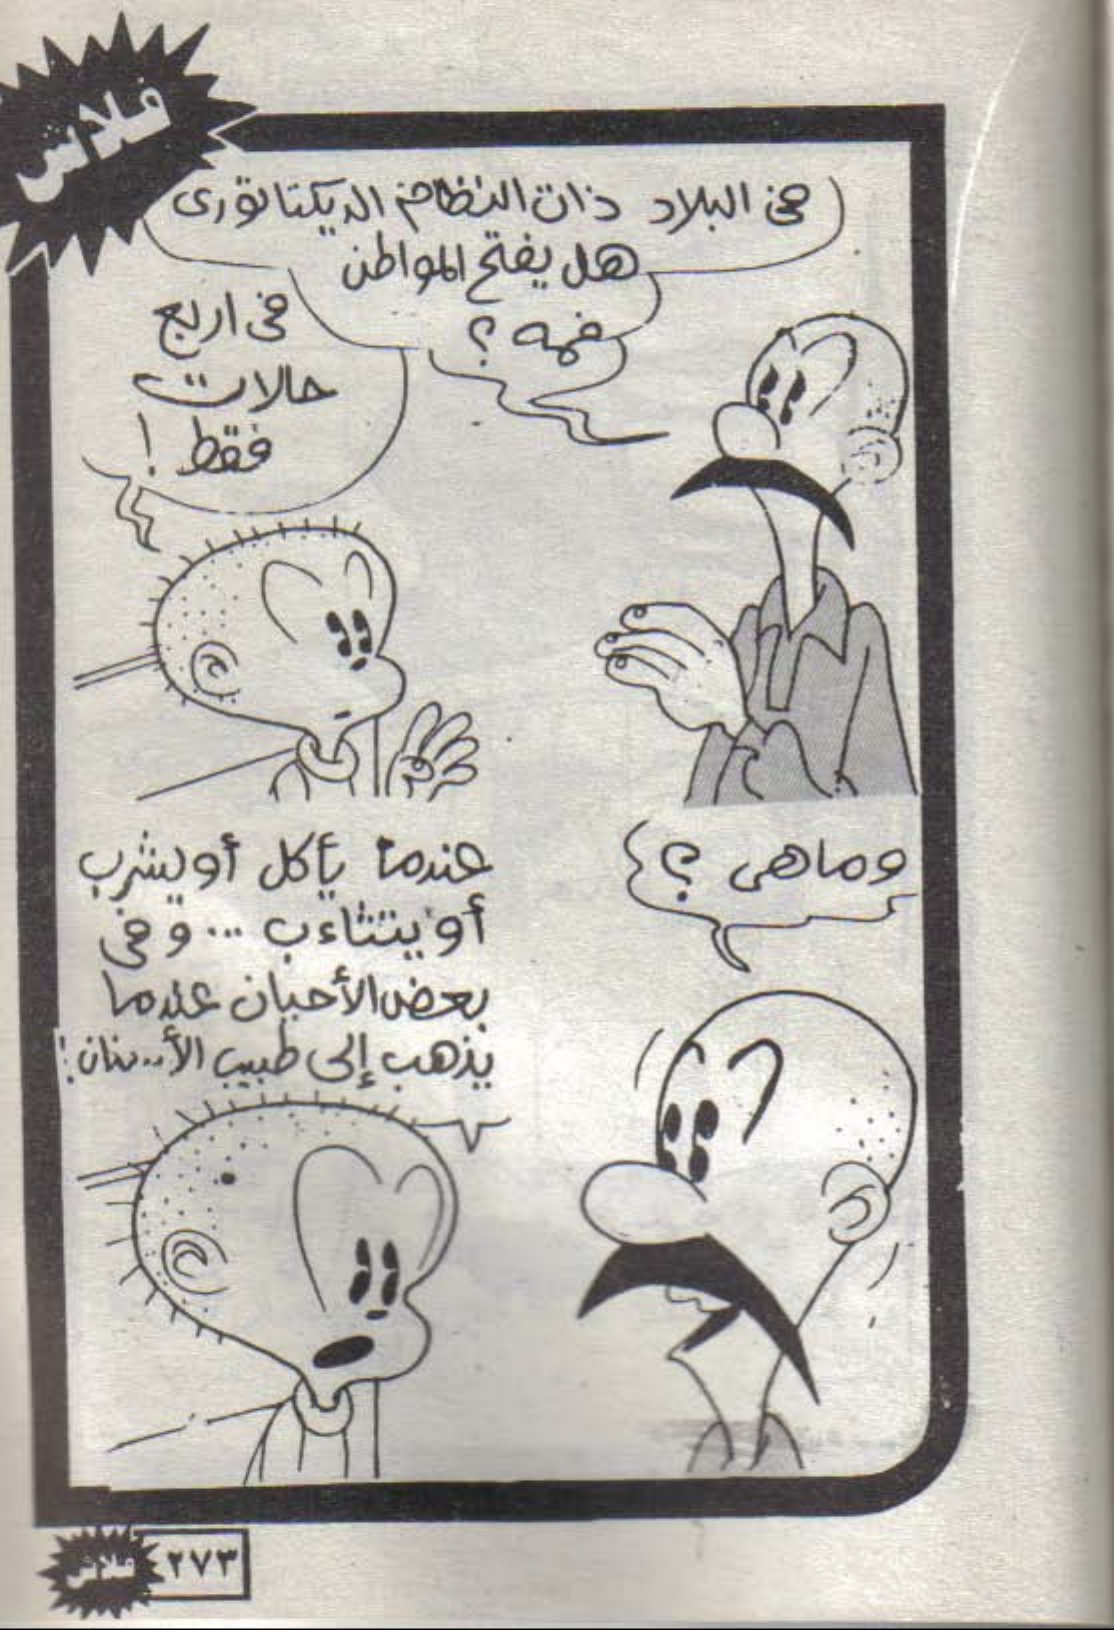 فلاش
فى البلاد ذات النظام الديكتاتورى
هل يفتح المواطن
فمه ؟
فى اربع
حالات
فقط !
وما هى ؟
عندما يأكل أو يشرب
أو يتثاءب ... و فى
بعض الأحيان عندما
يذهب إلى طبيب الأسنان !
٢٧٣
فلاش